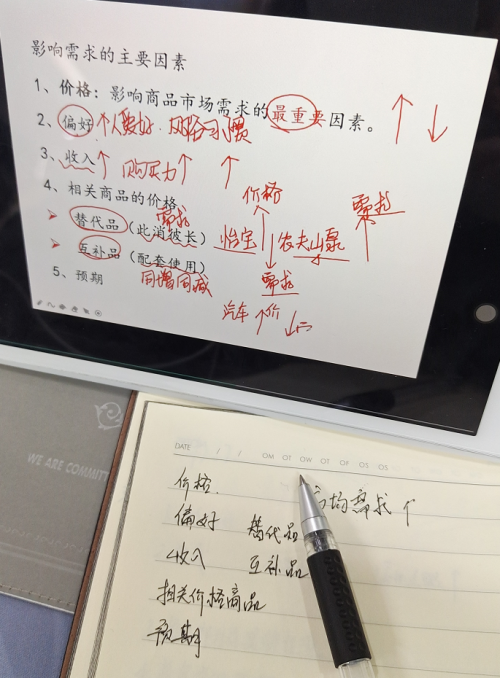 影响需求的主要因素
1、价格：影响商品市场需求的最重要因素。↑ ↓
2、偏好 个人喜好、风俗习惯
3、收入↑ 购买力↑ ↑
4、相关商品的价格
价格
需求
需求
➤ 替代品（此消彼长）怡宝 ↑ ↓ 农夫山泉 ↑
➤ 互补品（配套使用）
需求
5、预期 同增同减
汽车 ↑价
WE ARE COMMITT
DATE / / OM OT OW OT OF OS OS
价格
市场需求 个
偏好 替代品
收入 互补品
相关价格商品
预期